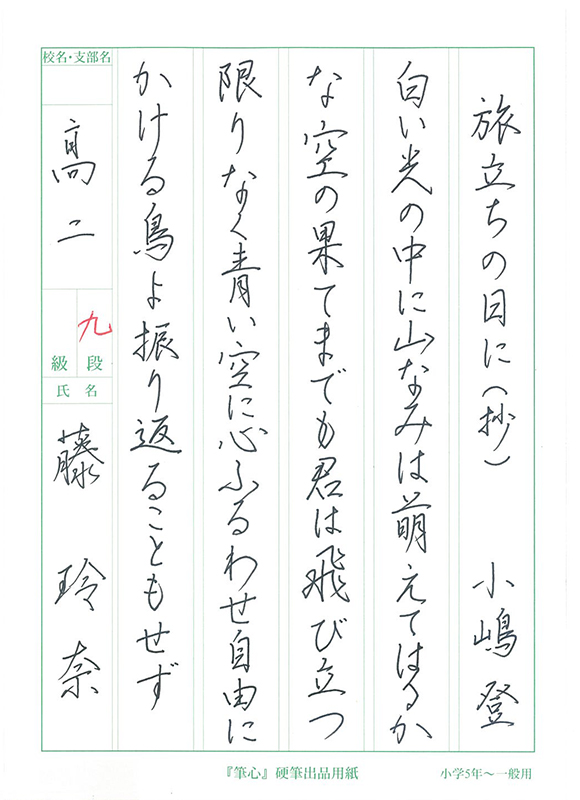 旅立ちの日に(抄) 小嶋登
白い光の中に山なみは萌えてはるか
な空の果てまでも君は飛び立つ
限りなく青い空に心ふるわせ自由に
かける鳥よ振り返ることもせず
校名・支部名
高二
九
段
級
氏名
藤 玲奈
『筆心』硬筆出品用紙
小学5年〜一般用